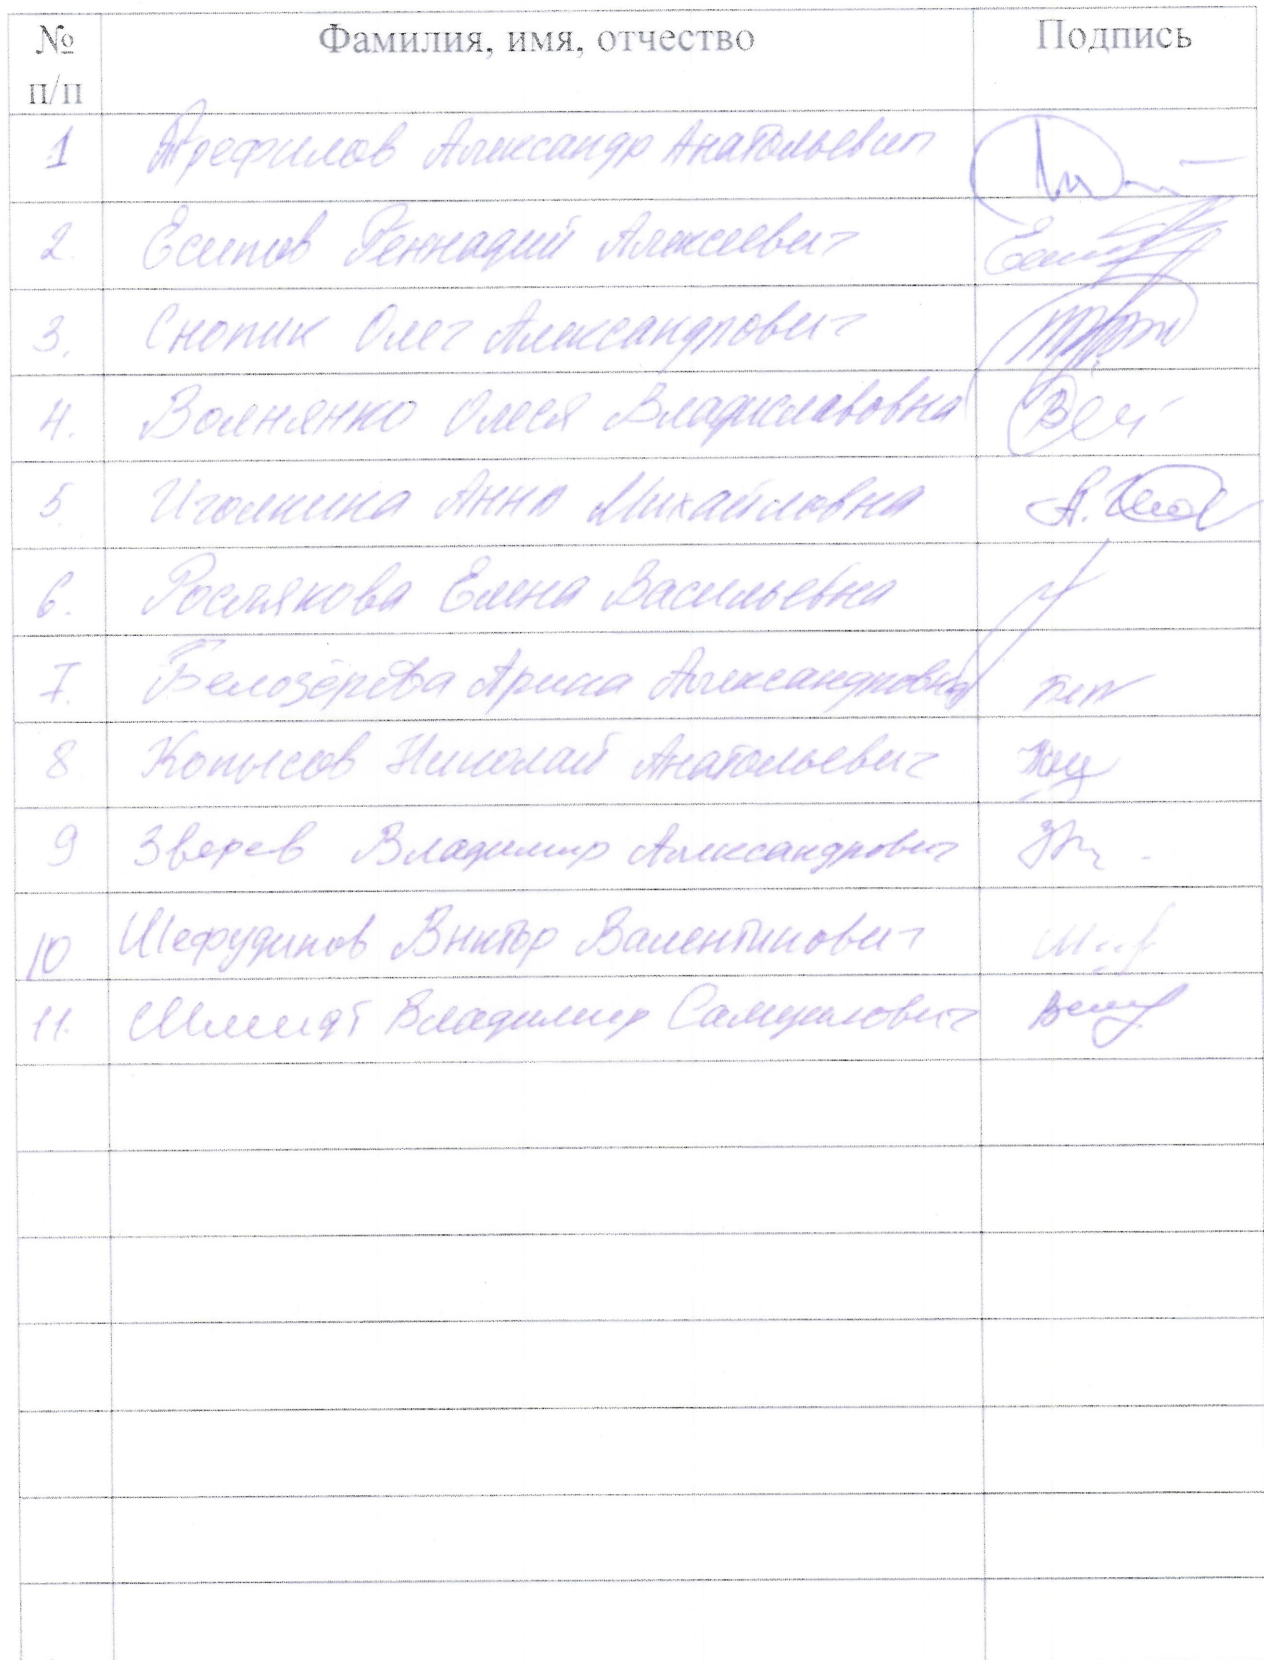 № п/п Фамилия, имя, отчество Подпись
1 Трефилов Александр Анатольевич
2. Есипов Геннадий Алексеевич
3. Снопик Олег Александрович
4. Олеся Владиславовна
5. Иголкина Анна Михайловна
6. Рослякова Елена Васильевна
7. Белозёрова Арина Александровна
8 Копысов Николай Анатольевич
9 Зверев Владимир Александрович
10 Виктор Валентинович
11. Шмидт Владимир Самуилович